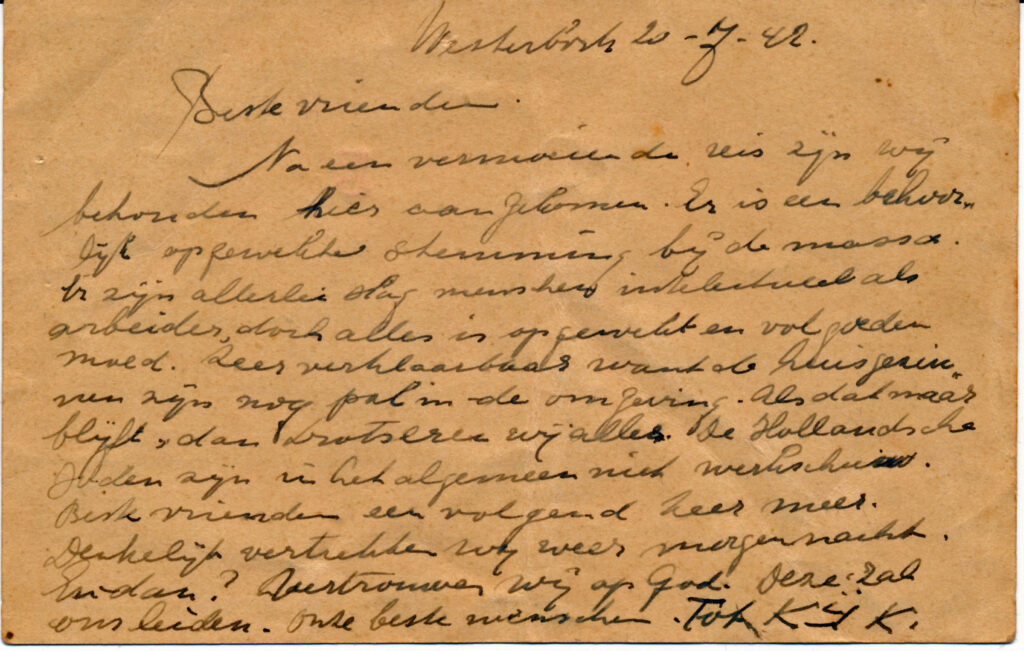 Westerbork 20-7-42.
Beste vrienden.
Na een vermoeiende reis zijn wij
behouden hier aangekomen. Er is een behoor„
lijk opgewekte stemming bij de massa.
Er zijn allerlei slag menschen intelectueel als
arbeider, doch alles is opgewekt en vol goeden
moed. Zeer verklaarbaar want de huisgezin„
nen zijn nog pal in de omgeving. Als dat maar
blijft, dan trotseren wij alles. De Hollandsche
Joden zijn in het algemeen niet werkschuw.
Beste vrienden een volgend keer meer.
Denkelijk vertrekken wij weer morgennacht.
En dan? Vertrouwen wij op God. Deze zal
ons leiden. Onze beste menschen. Tot KIJK.